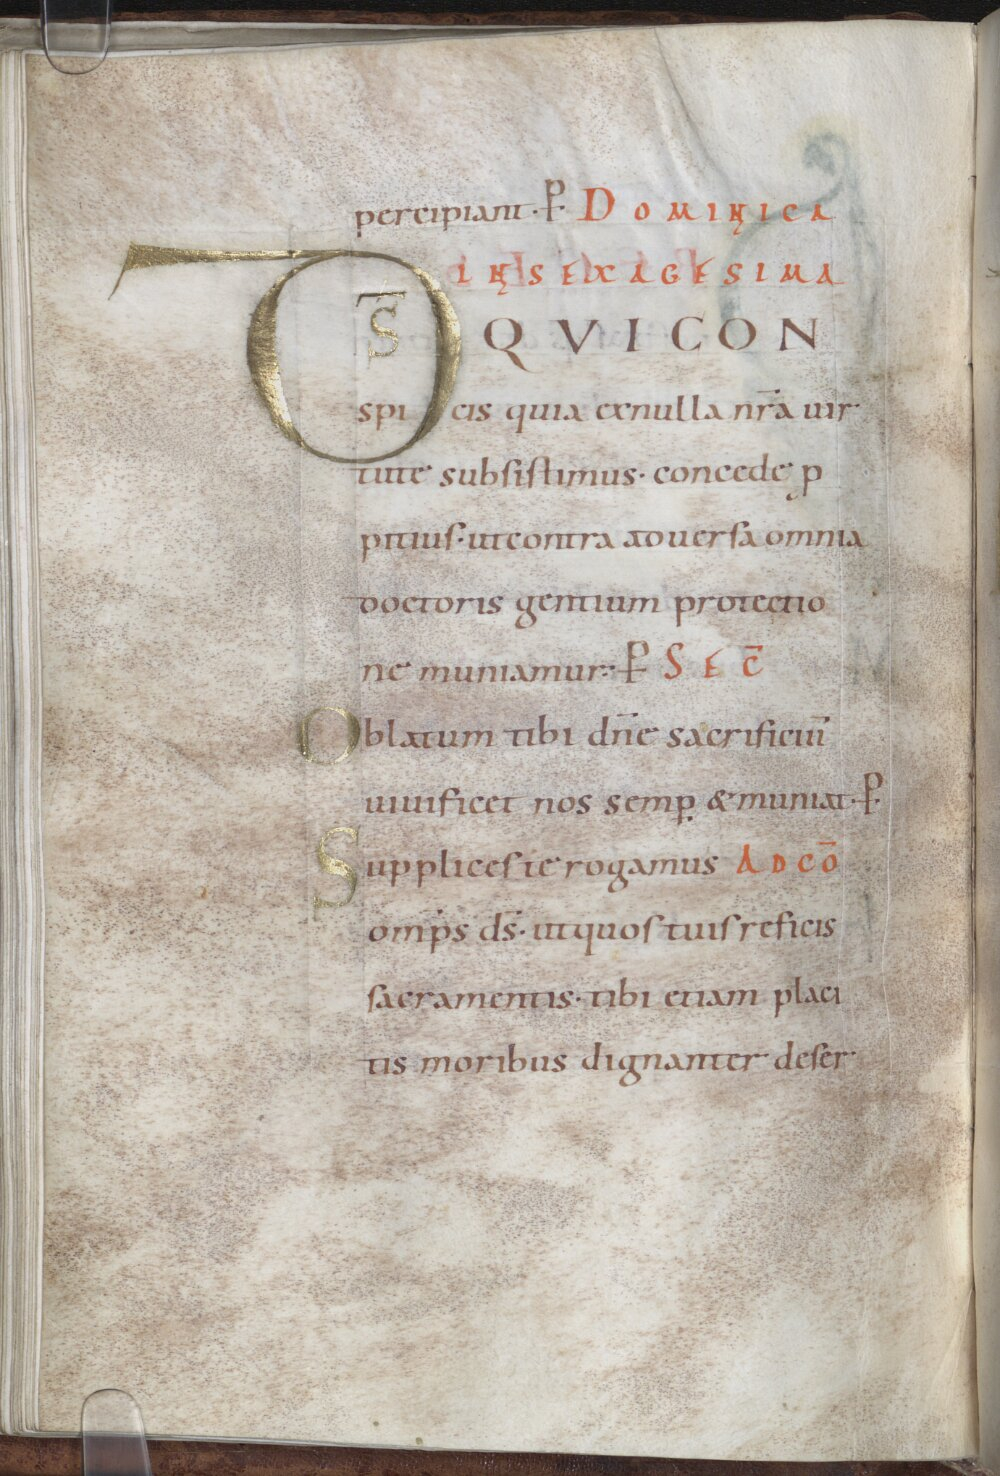 percipiant · P DOMINICA
IN SEXAGESIMA
D̅S̅ QVI CON
spicis quia exnulla nr̅a uir
tute subsistimus · concede p
pitius · ut contra aduersa omnia
doctoris gentium protectio
ne muniamur : P SEC̅
Oblatum tibi dn̅e sacrificiu̅
uiuificet nos semp & muniat · P
Supplices te rogamus AD CO̅
omp̅s ds̅ · ut quos tuis reficis
sacramentis · tibi etiam placi
tis moribus dignanter deser